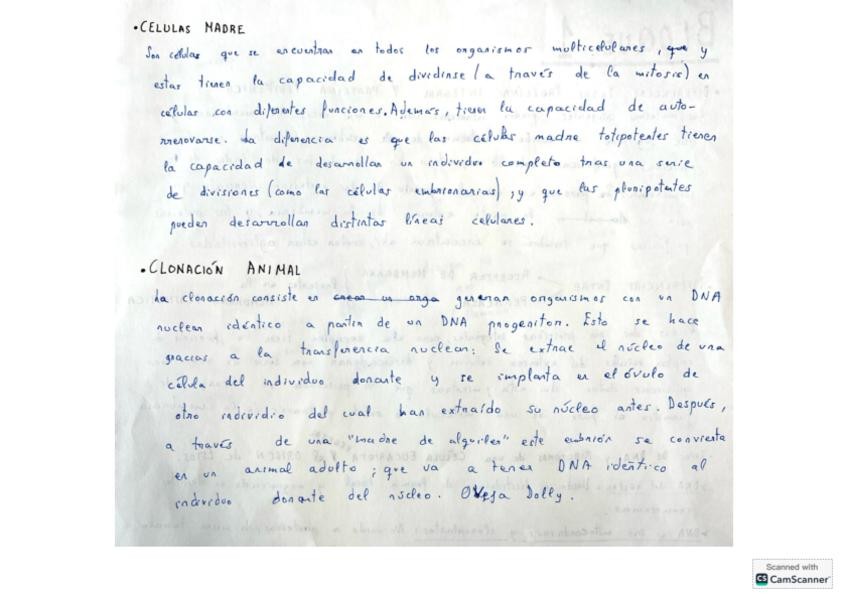 • CELULAS MADRE
Son células que se encuentran en todos los organismos multicelulares, que y
estas tienen la capacidad de dividirse (a través de la mitosis) en
células con diferentes funciones. Además, tienen la capacidad de auto-
rrenovarse. La diferencia es que las células madre totipotentes tienen
la capacidad de desarrollar un individuo completo tras una serie
de divisiones (como las células embrionarias), y que las pluripotentes
pueden desarrollar distintas líneas celulares.
• CLONACIÓN ANIMAL
La clonación consiste en crear un orga generar organismos con un DNA
nuclear idéntico a partir de un DNA progenitor. Esto se hace
gracias a la transferencia nuclear: Se extrae el núcleo de una
célula del individuo donante y se implanta en el óvulo de
otro individio del cual han extraído su núcleo antes. Después,
a través de una "madre de alquiler" este embrión se convierte
en un animal adulto, que va a tener DNA idéntico al
individuo donante del núcleo. OVeja Dolly.
Scanned with
CS CamScanner